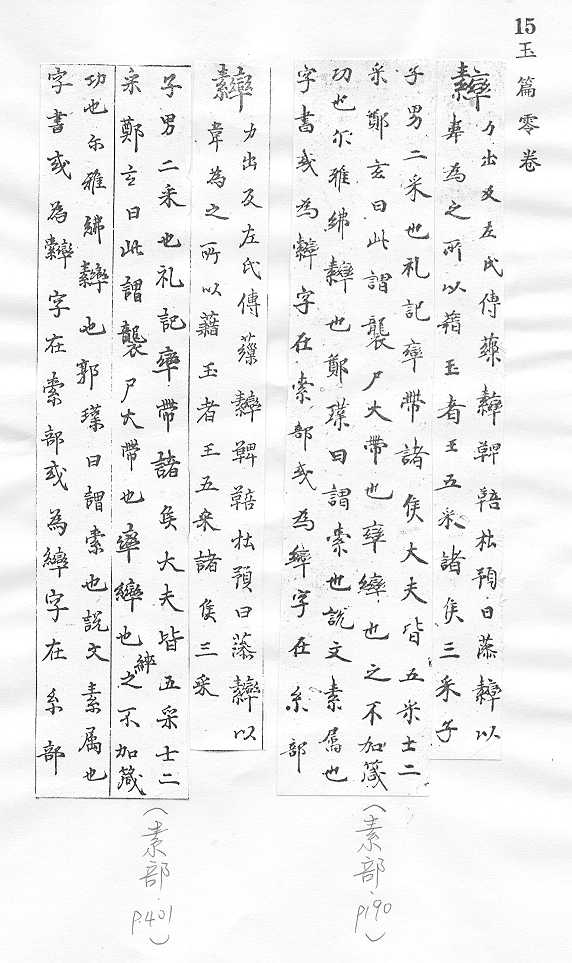 15 玉篇零卷
䋖 力出反左氏傳藻䋖鞞鞛杜預曰藻䋖以
韋為之所以藉玉者王五采諸侯三采子
子男二采也礼記率帶諸侯大夫皆五采士二
采鄭玄曰此謂襲尸大帶也率繂也之不加箴
功也尓雅紼䋖也鄭璞曰謂索也說文素属也
字書或為䋖字在索部或為繂字在糸部
(素部.p190)
䋖 力出反左氏傳藻䋖鞞鞛杜預曰藻䋖以
韋為之所以藉玉者王五采諸侯三采
子男二采也礼記率帶諸侯大夫皆五采士二
采鄭玄曰此謂襲尸大帶也率繂也繂之不加箴
功也尓雅紼䋖也郭璞曰謂索也說文素属也
字書或為䋖字在索部或為繂字在糸部
(素部.p.401)